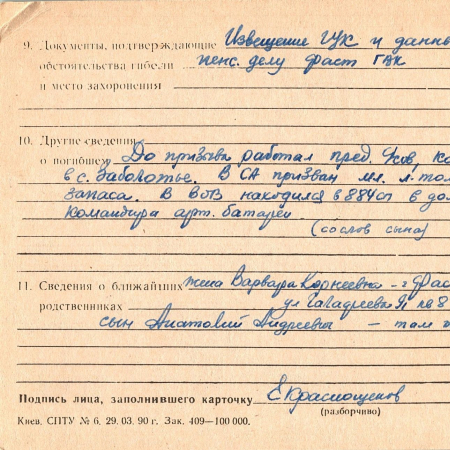 9. Документы, подтверждающие Извещение ГУК и данны
обстоятельства гибели пенс. делу фаст ГВК
и место захоронения
10. Другие сведения
о погибшем До призыва работал пред.
в с. Заболотье. В СА призван мл. л-том
запаса. В ВОВ находился в 884 сп в дол
командира арт. батареи
(со слов сына)
11. Сведения о ближайших жена Варвара Корнеевна - г. Фас
родственниках ул
сын Анатолий Андреевич - там
Подпись лица, заполнившего карточку Е Краснощеков
(разборчиво)
Киев. СПТУ № 6. 29. 03. 90 г. Зак. 409—100 000.